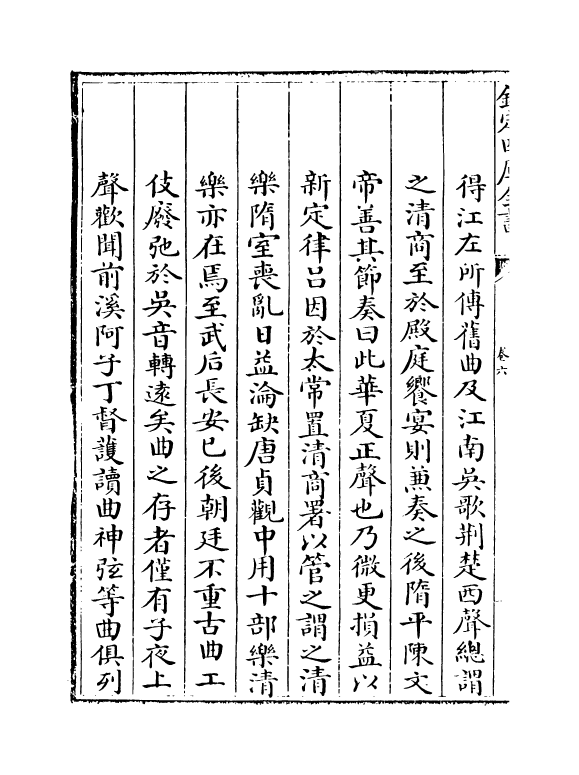 欽定四庫全書
卷六
得江左所傳舊曲及江南吳歌荆楚西聲總謂
之清商至於殿庭饗宴則兼奏之後隋平陳文
帝善其節奏曰此華夏正聲也乃微更損益以
新定律吕因於太常置清商署以管之謂之清
樂隋室喪亂日益淪缺唐貞觀中用十部樂清
樂亦在焉至武后長安已後朝廷不重古曲工
伎廢弛於吳音轉遠矣曲之存者僅有子夜上
聲歡聞前溪阿子丁督護讀曲神弦等曲俱列